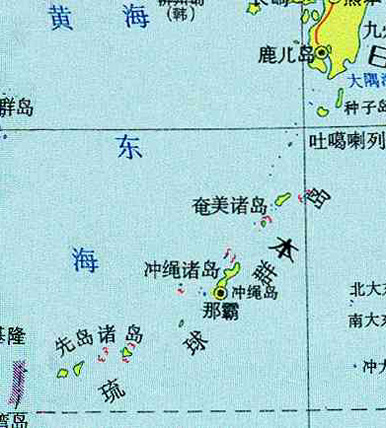 黄海
(韩)
九州
鹿儿岛
日
大隅
种子岛
群岛
东海
吐噶喇列
奄美诸岛
本
冲绳诸岛
冲绳岛
那霸
琉球群岛
先岛诸岛
北大东
南大东
冲大
基隆
湾岛